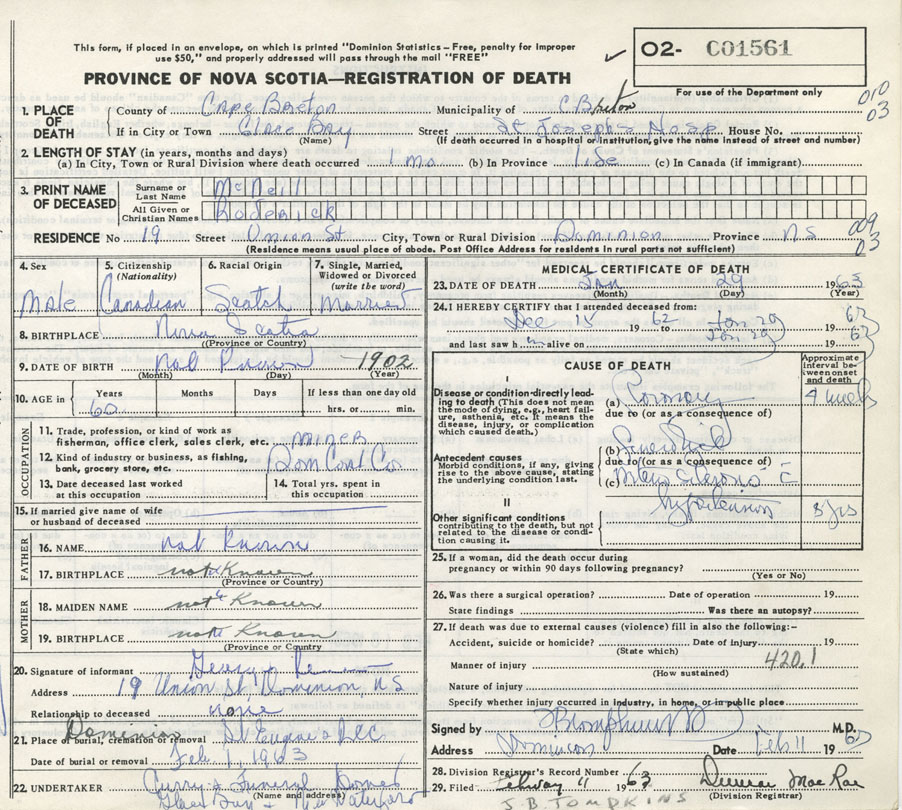 This form, if placed in an envelope, on which is printed "Dominion Statistics – Free, penalty for improper
use $50," and properly addressed will pass through the mail "FREE"
O2- C01561
For use of the Department only
PROVINCE OF NOVA SCOTIA—REGISTRATION OF DEATH
010
03
1. PLACE OF DEATH
County of Cape Breton Municipality of C Breton
If in City or Town Glace Bay Street St Josephs Hosp House No.
(Name) (If death occurred in a hospital or institution, give the name instead of street and number)
2. LENGTH OF STAY (in years, months and days)
(a) In City, Town or Rural Division where death occurred 1 mo (b) In Province life (c) In Canada (if immigrant)
3. PRINT NAME OF DECEASED
Surname or Last Name McNeill
All Given or Christian Names Roderick
RESIDENCE No 19 Street Union St City, Town or Rural Division Dominion Province NS
009
03
(Residence means usual place of abode. Post Office Address for residents in rural parts not sufficient)
4. Sex Male
5. Citizenship (Nationality) Canadian
6. Racial Origin Scotch
7. Single, Married, Widowed or Divorced (write the word) Married
8. BIRTHPLACE Nova Scotia
(Province or Country)
9. DATE OF BIRTH Not Known 1902
(Month) (Day) (Year)
10. AGE in Years 60 Months Days If less than one day old
hrs. or min.
OCCUPATION
11. Trade, profession, or kind of work as
fisherman, office clerk, sales clerk, etc. miner
12. Kind of industry or business, as fishing,
bank, grocery store, etc. Dom Coal Co
13. Date deceased last worked
at this occupation
14. Total yrs. spent in
this occupation
15. If married give name of wife
or husband of deceased
FATHER
16. NAME not Known
17. BIRTHPLACE not Known
(Province or Country)
MOTHER
18. MAIDEN NAME not Known
19. BIRTHPLACE not Known
(Province or Country
20. Signature of informant George
Address 19 Union St Dominion NS
Relationship to deceased none
21. Place of burial, cremation or removal Dominion St Eugene's
Date of burial or removal Feb 1, 1963
22. UNDERTAKER Curry's Funeral Home
(Name and address)
Glace Bay & New Waterford
MEDICAL CERTIFICATE OF DEATH
23. DATE OF DEATH Jan 29 1963
(Month) (Day) (Year)
24. I HEREBY CERTIFY that I attended deceased from:
Dec 15 1962 to Jan 29 1963
and last saw him alive on Jan 29 1963
CAUSE OF DEATH
Approximate interval between onset and death
I
Disease or condition directly leading to death (This does not mean the mode of dying, e.g., heart failure, asthenia, etc. It means the disease, injury, or complication which caused death.)
(a) Coronary 4 weeks
due to (or as a consequence of)
Antecedent causes
Morbid conditions, if any, giving rise to the above cause, stating the underlying condition last.
(b)
due to (or as a consequence of)
(c)
II
Other significant conditions
contributing to the death, but not related to the disease or condition causing it.
hypertension 8 yrs
25. If a woman, did the death occur during
pregnancy or within 90 days following pregnancy?
(Yes or No)
26. Was there a surgical operation? Date of operation 19
State findings Was there an autopsy?
27. If death was due to external causes (violence) fill in also the following:–
Accident, suicide or homicide? Date of injury 19
(State which)
Manner of injury 420.1
(How sustained)
Nature of injury
Specify whether injury occurred in industry, in home, or in public place
Signed by M.D.
Address Dominion Date Feb 11 1963
28. Division Registrar's Record Number
29. Filed February 11 1963 MacRae
(Division Registrar)
J.B. TOMPKINS